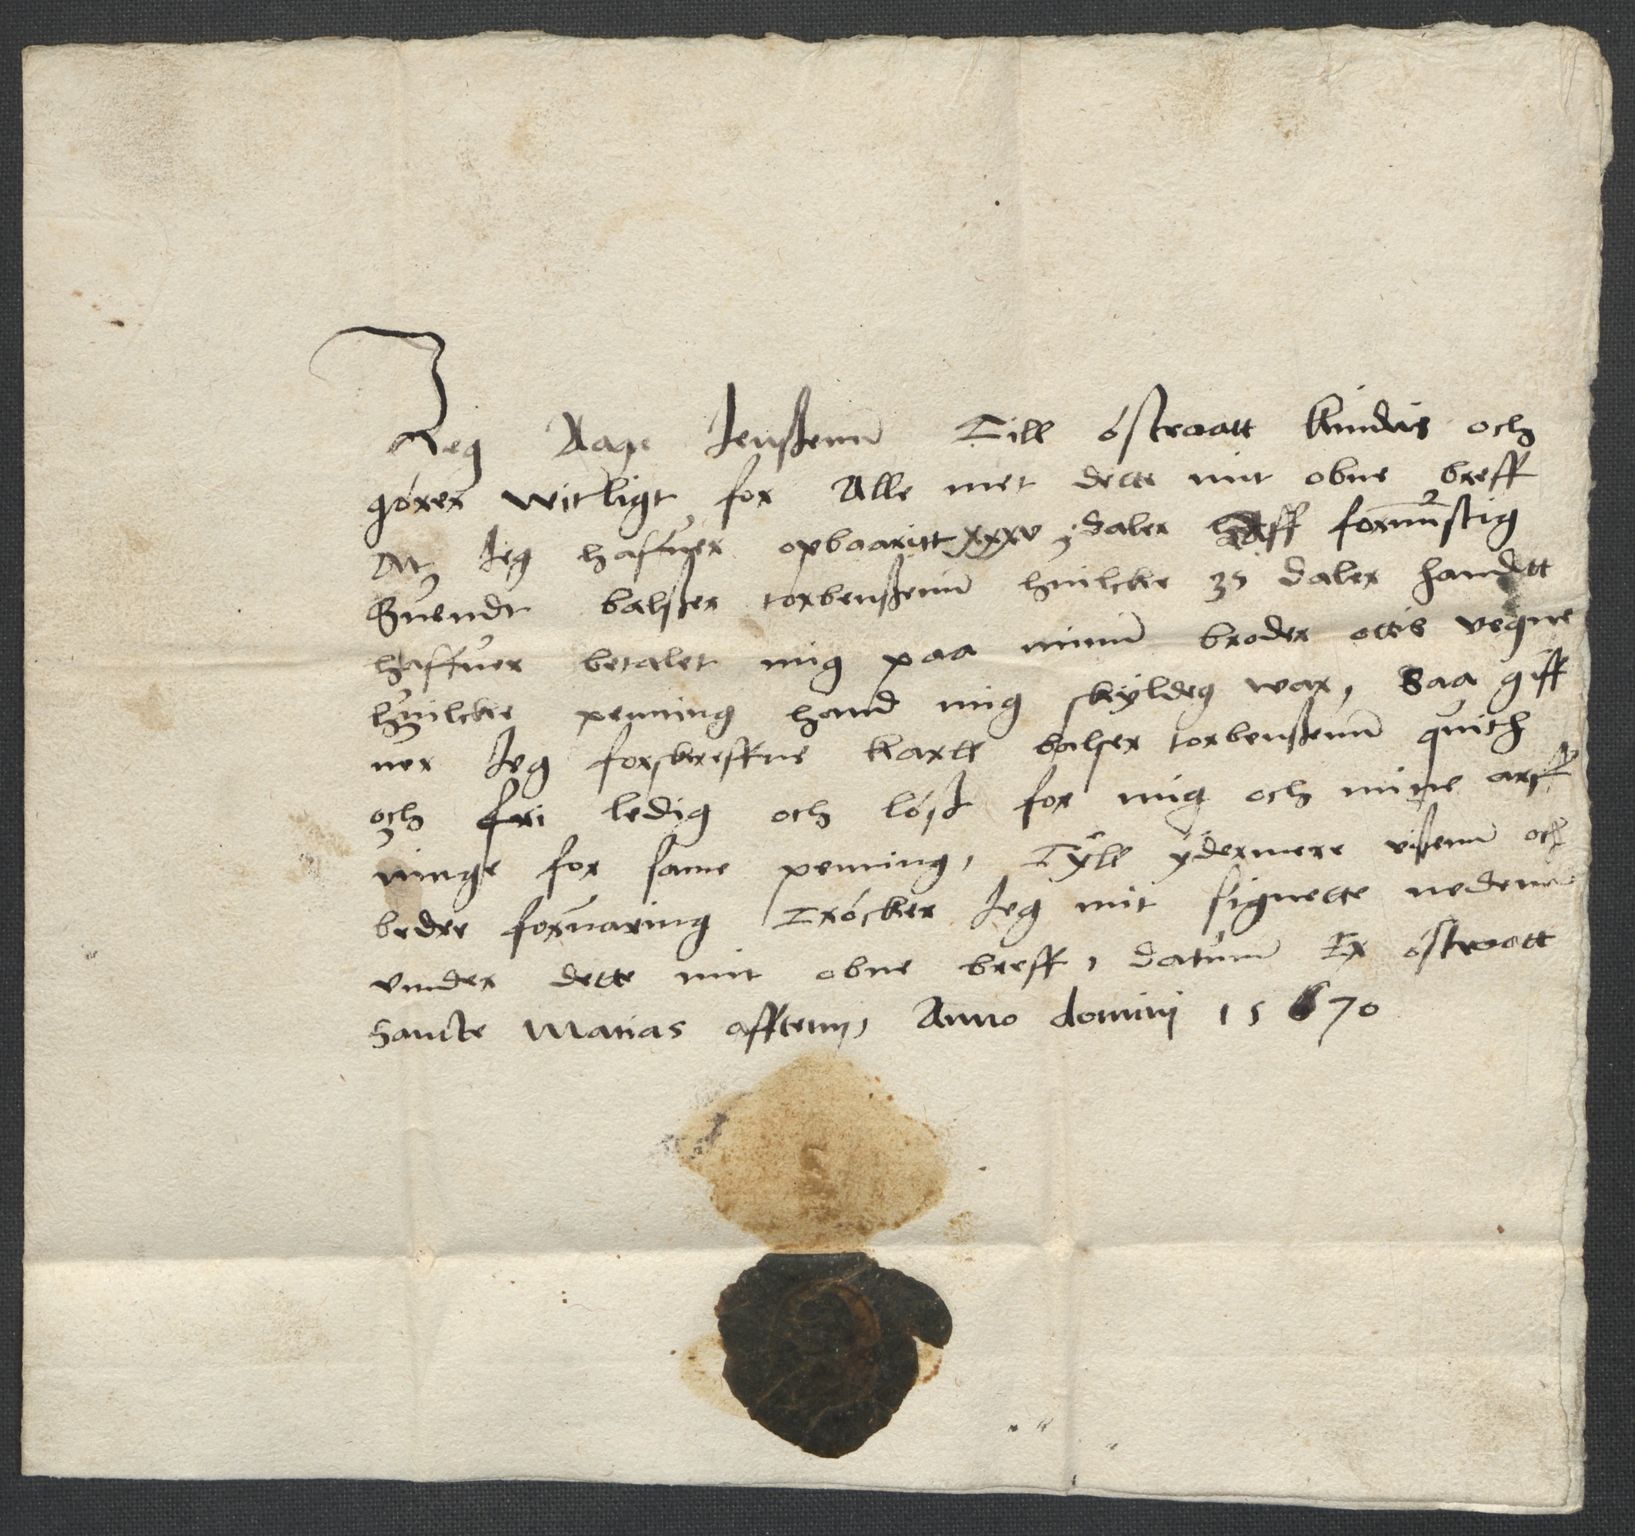 Jeg Aage Jenssenn Till östraatt kindis och
görer witligt for Alle met dette mit obne breff
At Jeg haffuer opbaaritt xxxv daler aff fornumstig
Suendt balsser torbenssenn huilcke 35 daler handtt
haffuer betalet mig paa minn broder ottis vegne
huilcke penning hand mig skyldeg war, Saa giff
uer Jeg forskreffne karll balser torbenssenn quith
och fri ledig och löss for mig och mine arff
uinge for same penning, Tyll ydermere visenn och
bedre foruaring Tröcker Jeg mit signette nedenn
vnder dette mit obne breff, datum Ex östraatt
Sancte Matias afftenn, Anno dominj 1570